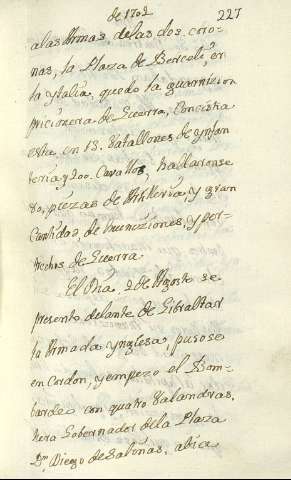 de 1702
227
alas Armas, de las dos coro-
nas, la Plaza de Berceli, en
la ytalia, quedo la guarnizion
pricionera de Guerra, Concistia
esta en 13. Batallones de ynfan
teria y 200. Cavallos, hallaronse
80, piezas de Artilleria, y gran
Cantidad, de municiones, y per-
trechos de Guerra
El Dia 2 de Agosto se
presento delante de Gibraltar
la Armada ynglesa, pusose
en Cordon, y empezo el Bom-
bardeo con quatro Balandras,
hera Gobernador de la Plaza
Dn. Diego de Salinas, abia